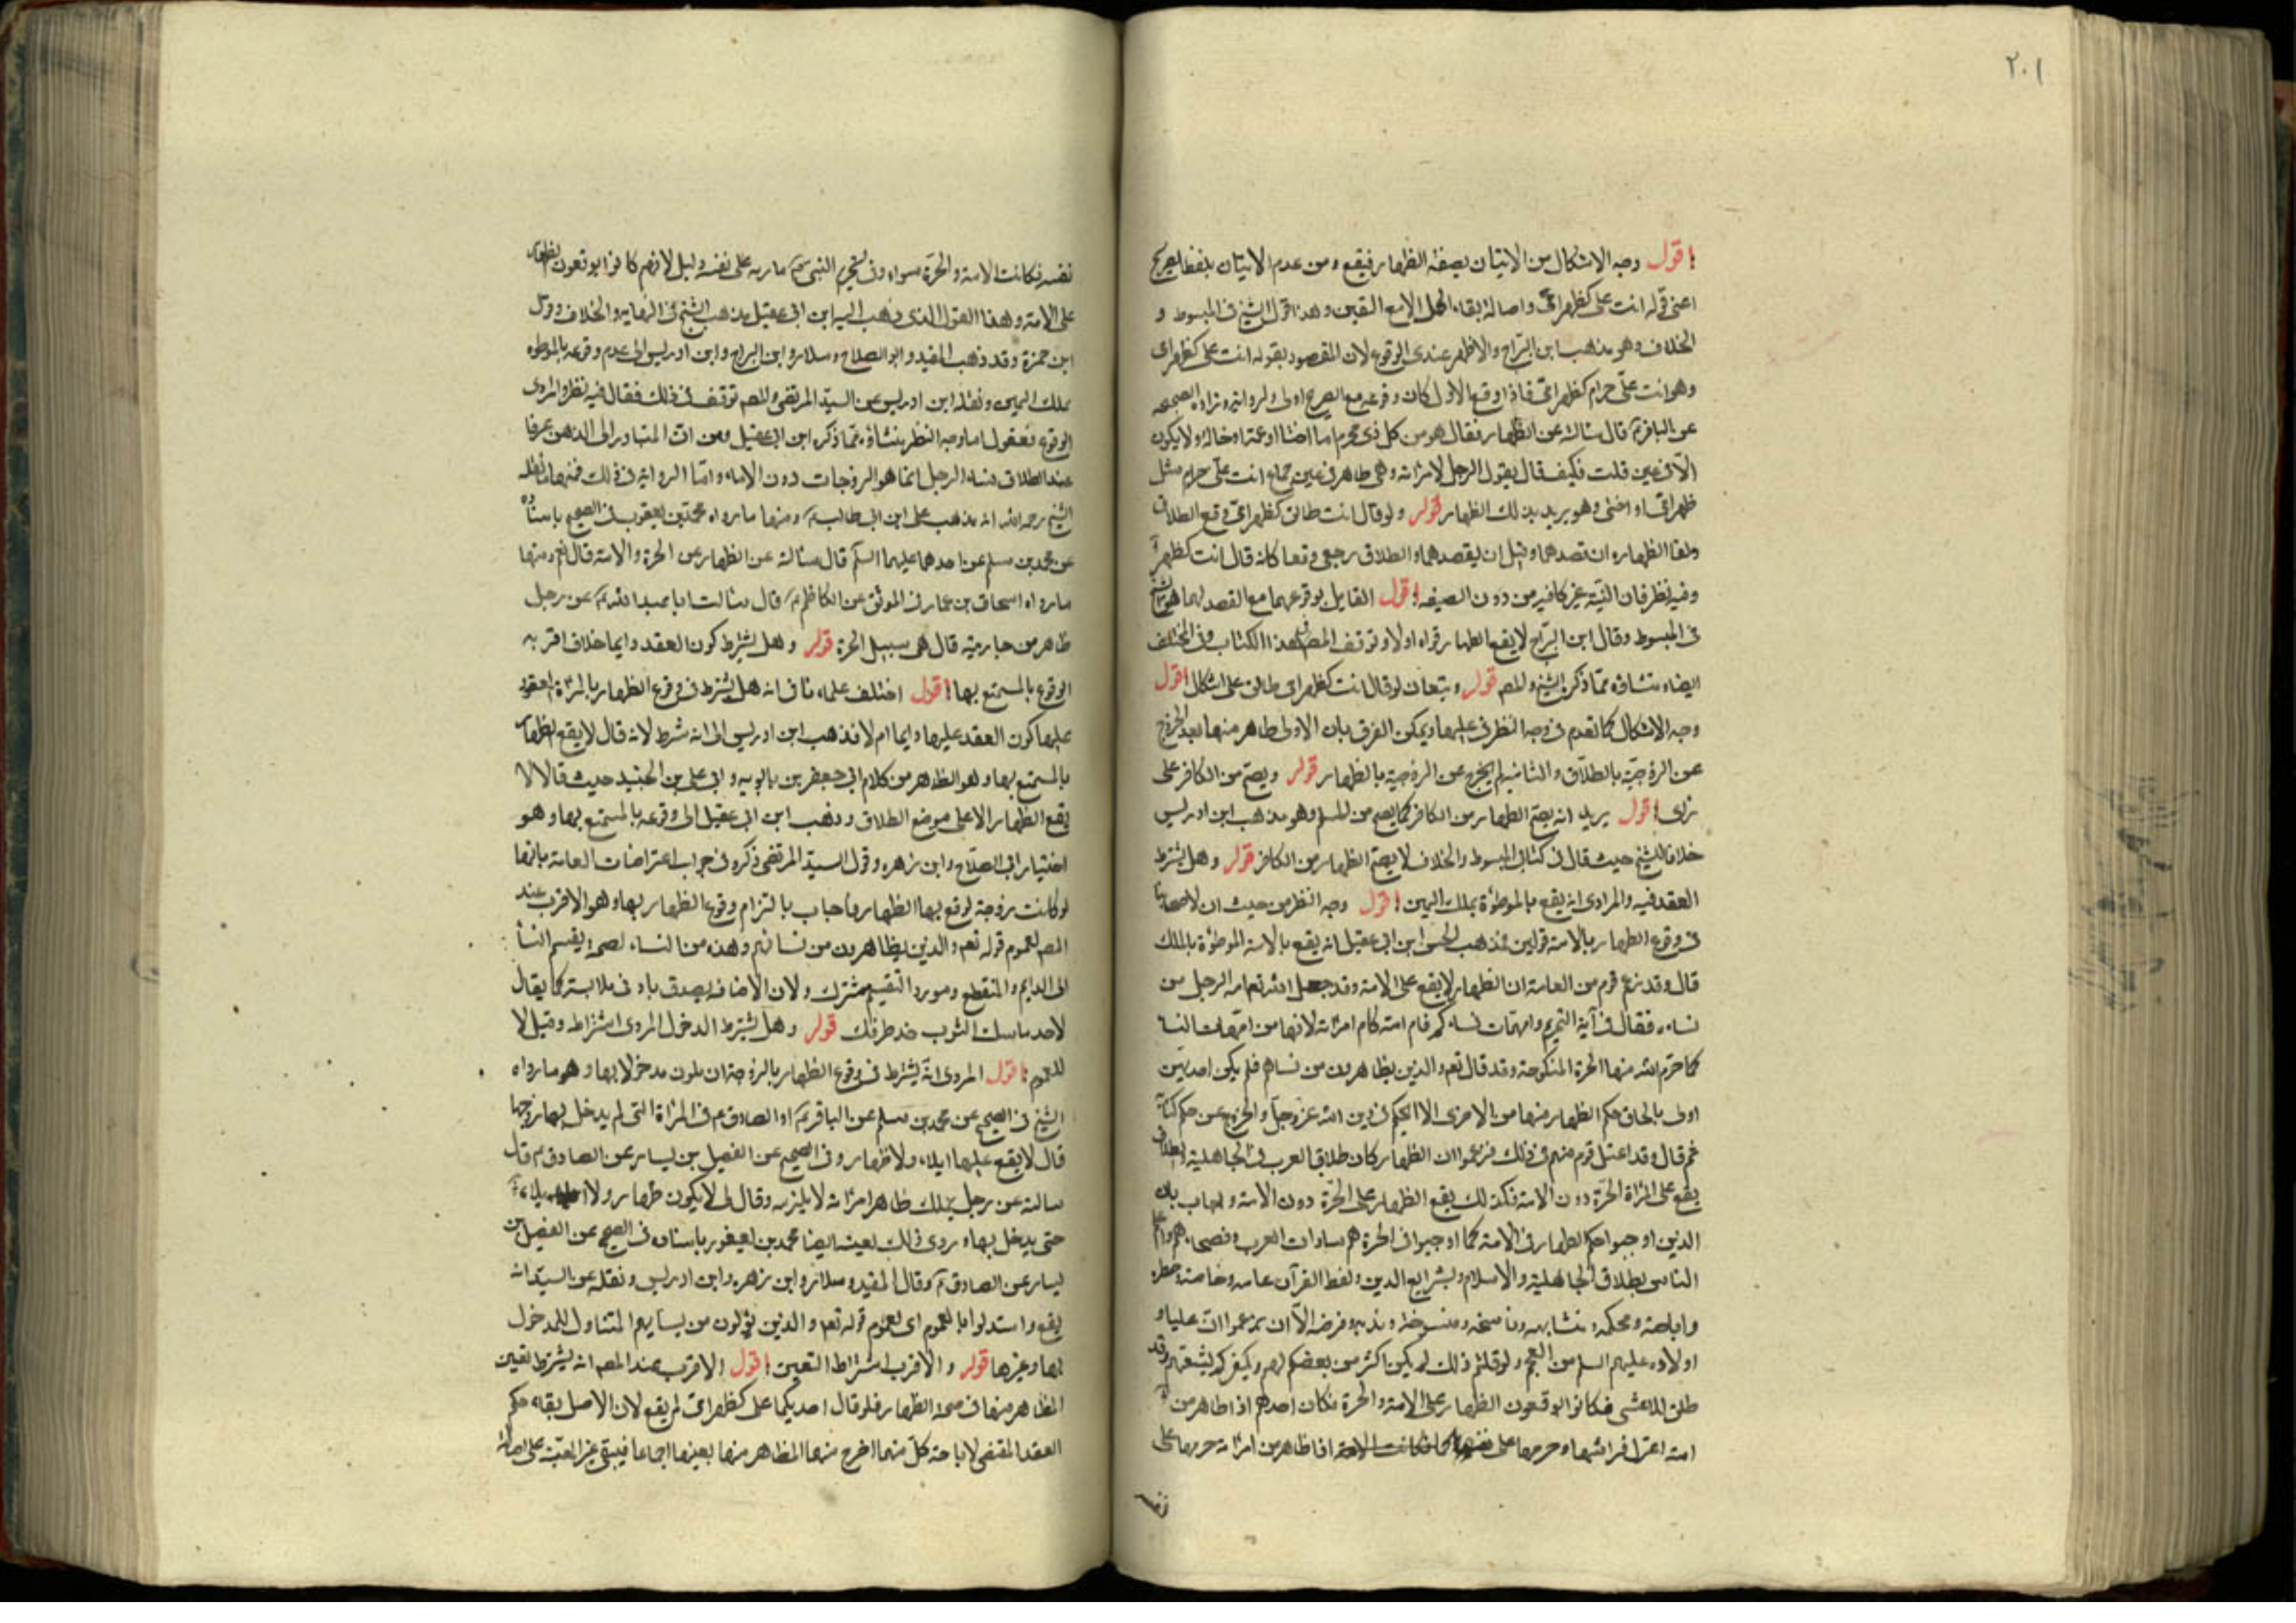 ٢٠١
اقول وجه الاشكال من الاتيان بصفة الظهار فيقع ومن عدم الاتيان بلفظ الصريح
اعنى قوله انت على كظهر امى واصالة بقاء الحل الا مع اليقين وهذا قول الشيخ فى المبسوط و
الخلاف وهو مذهب ابن البراج والاظهر عندى الوقوع لان المقصود بقوله انت على كظهر امى
وهو انت علىّ حرام كظهر امى فاذا وقع الاول كان وقوعه مع الصريح اولى ولرواية زراره الصحيحه
عن الباقر ع قال سالته عن الظهار فقال هو من كل ذى محرم اما اختا او عمة او خالة ولا يكون
الا فى يمين قلت فكيف قال يقول الرجل لامراته وهى طاهر فى غير جماع انت علىّ حرام مثل
ظهر امى او اختى وهو يريد بذلك الظهار قوله ولو قال انت طالق كظهر امى وقع الطلاق
ولغا الظهار وان قصدهما وقيل ان يقصدهما والطلاق رجعى وقعا كانه قال انت كظهر
وفيه نظر فان النية غير كافيه من دون الصيغه اقول القايل بوقوعهما مع القصد لهما هو الشيخ
فى المبسوط وقال ابن البراج لا يقع الظهار قواه اولا وتوقف المص فى هذا الكتاب وفى المختلف
ايضا ومنشاؤه مما ذكره الشيخ والمص قوله ويقعان لو قال انت كظهر امى طالق على اشكال اقول
وجه الاشكال كما تقدم فى وجه النظر فى عليها ويمكن الفرق بان الاولى ظاهر منها بعد الخروج
عن الزوجية بالطلاق والثانية لم يخرج عن الزوجية بالظهار قوله ويصح من الكافر على
راى اقول يريد انه يصح الظهار من الكافر كما يصح من المسلم وهو مذهب ابن ادريس
خلافا للشيخ حيث قال فى كتابى المبسوط والخلاف لا يصح الظهار من الكافر قوله وهل يشترط
العقد فيه والمراد انه يقع بالموطؤة بملك اليمين اقول وجه النظر من حيث ان لاصحابنا
فى وقوع الظهار بالامة قولين فذهب الحسن ابن ابى عقيل انه يقع بالامة الموطؤة بالملك
قال وقد زعم قوم من العامة ان الظهار لا يقع على الامة وقد جعل الله تعالى امة الرجل من
نسائه فقال فى آية التحريم وامهات نسائكم فام امته كام امراته لانها من امهات النسا
كما حرم الله منها الحرة المنكوحة وقد قال تعم والذين يظاهرون من نسائهم فلم يكن احديهن
اولى بالحاق حكم الظهار منها من الاخرى الا التحكم فى دين الله عز وجل والخروج عن حكم كتابه
ثم قال وقد اعتل قوم منهم فى ذلك فزعموا ان الظهار كان طلاق العرب فى الجاهلية والطلاق
يقع على المراة الحرة دون الامة فكذلك يقع الظهار على الحرة دون الامة واجاب بان
الذين اوجبوا حكم الظهار فى الامة كما اوجبوا فى الحرة هم سادات العرب وفصحاءهم واعلم
الناس بطلاق الجاهلية والاسلام وشرايع الدين ولفظ القرآن عامه وخاصه وحظره
واباحته ومحكمه ومتشابهه وناسخه ومنسوخه وندبه وفرضه الا ان يزعموا ان عليا و
اولاده عليهم السلم من العجم ولو قلتم ذلك لم يكن اكثر من بغضكم لهم وتكفيركم لشيعتهم وقد
ظن الاعشى فكانوا يوقعون الظهار على الامة والحرة فكان احدهم اذا ظاهر من
امته اعتزل فراشها وحرمها على نفسه كما كانت الامة اذا ظاهر من امراته حرمها على
نفسه
نفسه فكانت الامة والحرة سواء وفى تحريم النبى ص مارية على نفسه دليل لانهم كانوا يوقعون الظهار
على الامة وهذا القول الذى ذهب اليه ابن ابى عقيل مذهب الشيخ فى النهاية والخلاف وقول
ابن حمزة وقد ذهب المفيد وابو الصلاح وسلار وابن البراج وابن ادريس الى عدم وقوعه بالموطوه
بملك اليمين ونقله ابن ادريس عن السيد المرتضى والمص توقف فى ذلك فقال فيه نظر والمروى
الوقوع فنقول اما وجه النظر ينشاؤه مما ذكره ابن ابى عقيل ومن ان المتبادر الى الذهن عرفا
عند اطلاق نساء الرجل انما هو الزوجات دون الاماء واما الرواية فى ذلك فمنها ما نقله
الشيخ رحمه الله انه مذهب على ابن ابى طالب ع ومنها ما رواه محمد بن يعقوب فى الصحيح باسناده
عن محمد بن مسلم عن احدهما عليهما السلم قال سالته عن الظهار من الحرة والامة قال نعم ومنها
ما رواه اسحاق بن عمار فى الموثق عن الكاظم ع قال سالت ابا عبد الله ع عن رجل
ظاهر من جاريته قال هى سبيل الحرة قوله وهل يشترط كون العقد دايما خلاف اقربه
الوقوع بالمستمتع بها اقول اختلف علماءنا فى انه هل يشترط فى وقوع الظهار بالمراة المعقود
عليها كون العقد عليها دايما ام لا فذهب ابن ادريس الى انه شرط لانه قال لا يقع الظهار
بالمستمتع بها وهو الظاهر من كلام ابى جعفر بن بابويه وابى على بن الجنيد حيث قالا لا
يقع الظهار الا على موضع الطلاق وذهب ابن ابى عقيل الى وقوعه بالمستمتع بها وهو
اختيار ابى الصلاح وابن زهره وقول السيد المرتضى ذكره فى جواب اعتراضات العامة بانها
لو كانت زوجة لوقع بها الظهار فاجاب بالتزام وقوع الظهار بها وهو الاقرب عند
المص لعموم قوله تعم والذين يظاهرون من نسائهم وهذه من النساء لصحة تقسيم النساء
الى الدايم والمنقطع ومورد التقسيم مشترك ولان الاضافة يصدق بادنى ملابسة كما يقال
لاحد ماسك الثوب خذ طرفك قوله وهل يشترط الدخول المروى اشتراطه وقيل لا
للعموم اقول المروى انه يشترط فى وقوع الظهار بالزوجة ان يكون مدخولا بها وهو ما رواه
الشيخ فى الصحيح عن محمد بن مسلم عن الباقر ع او الصادق ع فى المراة التى لم يدخل بها زوجها
قال لا يقع عليها ايلاء ولا ظهار وفى الصحيح عن الفضيل بن يسار عن الصادق ع قال
سالته عن رجل مملك ظاهر امراته لا يلزمه وقال لى لا يكون ظهار ولا ايلاء
حتى يدخل بها وروى ذلك بعينه ايضا محمد بن يعقوب باسناده فى الصحيح عن الفضيل بن
يسار عن الصادق ع وقال المفيد وسلار وابن زهره وابن ادريس ونقله عن السيد انه
يقع واستدلوا بالعموم اى لعموم قوله تعم والذين يؤلون من نسايهم المتناول للمدخول
بها وغيرها قوله والاقرب اشتراط التعيين اقول الاقرب عند المص انه يشترط تعيين
المظاهر منها فى صحة الظهار فلو قال احديكما على كظهر امى لم يقع لان الاصل بقاء حكم
العقد المقتضى لاباحة كل منهما اخرج منها المظاهر منها بعينها اجماعا فيبقى غير المعينة على اصالة